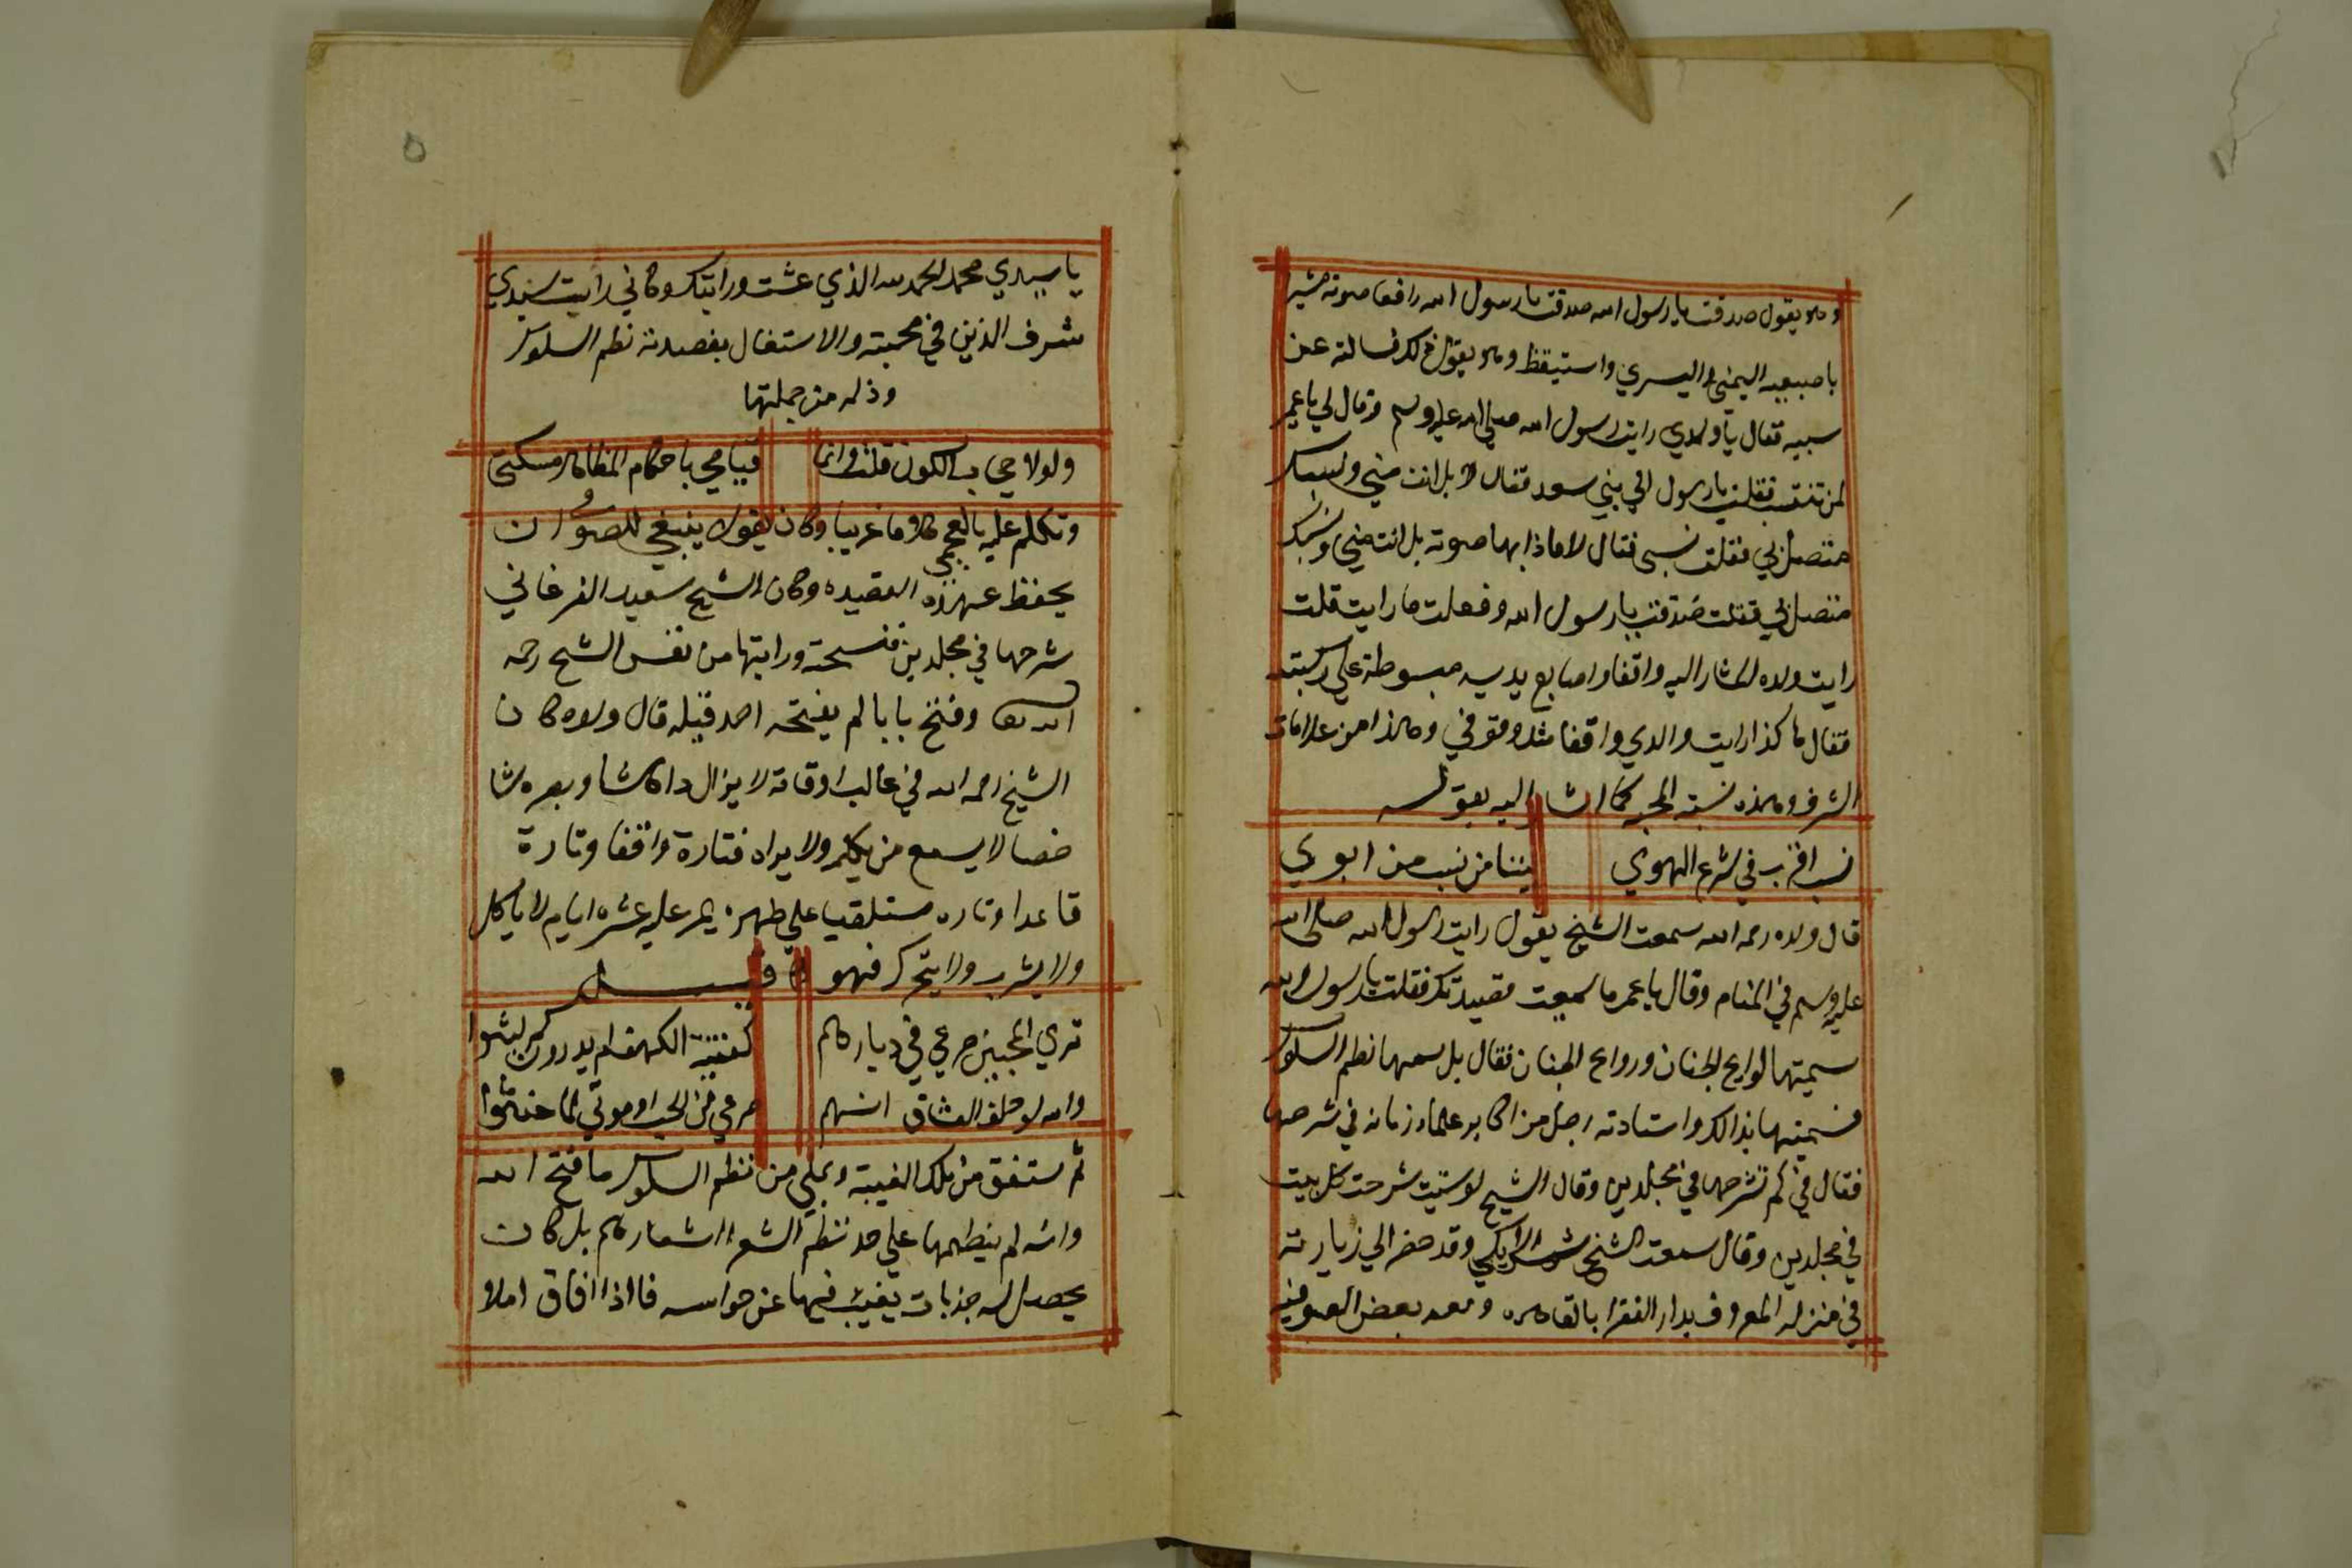 وهو يقول صدقت يا رسول الله صدقت يا رسول الله رافعا صوته مشير
باصبعيه اليمني واليسري واستيقظ وهو يقول ذلك فسالته عن
سببه فقال يا ولدي رايت رسول الله صلي الله عليه وسلم وقال لي يا عمر
لمن تنتسب فقلت يا رسول الي بني سعد فقال لا بل انت مني ونسبك
متصل بي فقلت نسبي فقال لا مادا بها صوته بل انت مني ونسبك
متصل بي فقلت صدقت يا رسول الله وفعلت ما رايت قلت
رايت ولده المشار اليه واقفا واصابع يديه مبسوطة علي ركبته
فقال هاكذا رايت والدي واقفا مثل وقوفي وهاذا من علامات
الشرف وهذه نسبة المحبه كما اشار اليه بقوله
نسب اقرب في شرع الهوي بيننا من نسب من ابوي
قال ولده رحمه الله سمعت الشيخ يقول رايت رسول الله صلى الله
عليه وسلم في المنام وقال يا عمر ما سميت قصيدتك فقلت يا رسول الله
سميتها لوايح الجنان وروايح الجنان فقال بل سمها نظم السلوك
فسميتها بذالك واستادنه رجل من اكابر علماء زمانه في شرحها
فقال في كم تشرحها في مجلدين وقال الشيخ لو شيت شرحت كل بيت
في مجلدين وقال سمعت الشيخ شمس الايكي وقد حضر الي زيارته
في منزله المعروف بدار الفقرا بالقاهره ومعه بعض الصوفيه
يا سيدي محمد الحمد لله الذي عشت ورايتك وكاني رايت سيدي
شرف الدين في محبته والاستغال بقصيدته نظم السلوك
وذكر من جملتها
ولولا حجاب الكون قلت وانما قيامي باحكام المظاهر مسكتي
وتكلم عليه بالعجمي كلاما غريبا وكان يقول ينبغي للصوفي ان
يحفظ هذه القصيده وكان الشيخ سعيد الفرغاني
شرحها في مجلدين فنسخته ورايتها من نفس الشيخ رحمه
الله تعا وفتح بابا لم يفتحه احد قبله قال ولده كان
الشيخ رحمه الله في غالب اوقاته لا يزال داهشا وبصره شا
خصا لا يسمع من يكلمه ولا يراه فتارة واقفا وتارة
قاعدا وتاره مستلقيا على ظهره يمر عليه عشره ايام لا ياكل
ولا يشرب ولا يتحرك فهو كما قيل
تري المحبين صرعي في ديارهم كفتية الكهف لم يدرون كم لبثوا
والله لو حلف العشاق انهم صرعي من الحب او موتي لما حنثوا
ثم ستفق من تلك الغيبة ويملي من نظم السلوك ما فتح الله
وانه لم ينظمها علي حد نظم الشعرا اشعارهم بل كان
يحصل له جذبات يغيب فيها عن حواسه فااذا افاق املا